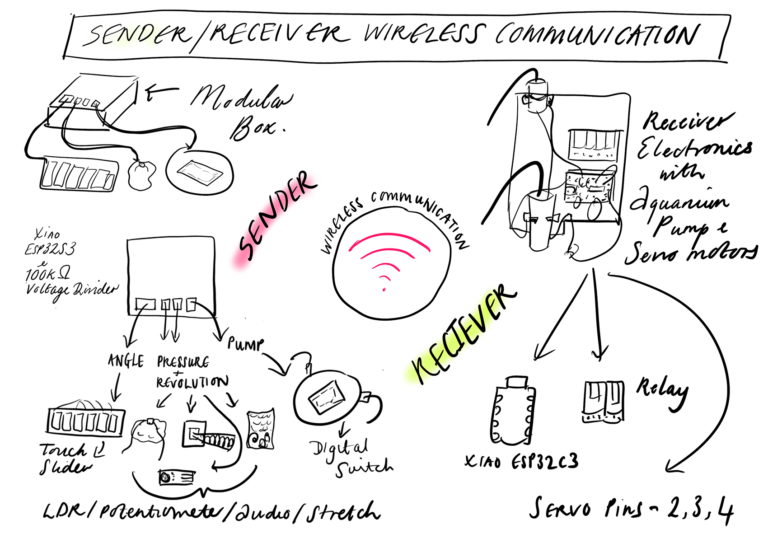 SENDER/RECEIVER WIRELESS COMMUNICATION
Modular
Box.
Receiver
Electronics
with
Aquarium
Pump &
Servo motors
SENDER
WIRELESS COMMUNICATION
XIAO
ESP32S3
&
100KΩ
Voltage Divider
RECIEVER
ANGLE
PRESSURE
+
REVOLUTION
PUMP
Touch
Slider
Digital
Switch
LDR/Potentiometer/audio/stretch
XIAO ESP32C3
Relay
SERVO Pins - 2, 3, 4